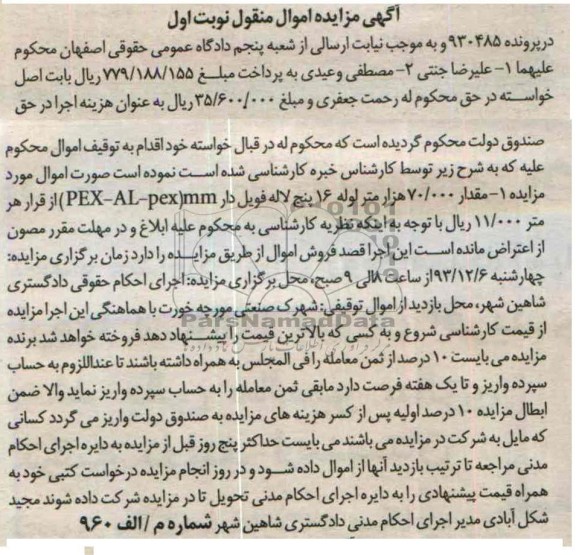 آگهی مزایده اموال منقول نوبت اول
در پرونده ۹۳۰۴۸۵ و به موجب نیابت ارسالی از شعبه پنجم دادگاه عمومی حقوقی اصفهان محکوم
علیهما ۱- علیرضا جنتی ۲- مصطفی وعیدی به پرداخت مبلغ ۷۷۹/۱۸۸/۱۵۵ ریال بابت اصل
خواسته در حق محکوم له رحمت جعفری و مبلغ ۳۵/۶۰۰/۰۰۰ ریال به عنوان هزینه اجرا در حق
صندوق دولت محکوم گردیده است که محکوم له در قبال خواسته خود اقدام به توقیف اموال محکوم
علیه که به شرح زیر توسط کارشناس خبره کارشناسی شده است نموده است صورت اموال مورد
مزایده ۱- مقدار ۷۰/۰۰۰ هزار متر لوله ۱۶ پنج لاله فویل دار PEX-AL-pex)mm) از قرار هر
متر ۱۱/۰۰۰ ریال با توجه به اینکه نظریه کارشناسی به محکوم علیه ابلاغ و در مهلت مقرر مصون
از اعتراض مانده است این اجرا قصد فروش اموال از طریق مزایده را دارد زمان برگزاری مزایده:
چهارشنبه ۹۳/۱۲/۶ از ساعت ۸ الی ۹ صبح، محل برگزاری مزایده: اجرای احکام حقوقی دادگستری
شاهین شهر، محل بازدید از اموال توقیفی: شهرک صنعتی مورچه خورت با هماهنگی این اجرا مزایده
از قیمت کارشناسی شروع و به کسی که بالاترین قیمت را پیشنهاد دهد فروخته خواهد شد برنده
مزایده می بایست ۱۰ درصد از ثمن معامله را فی المجلس به همراه داشته باشند تا عنداللزوم به حساب
سپرده واریز و تا یک هفته فرصت دارد مابقی ثمن معامله را به حساب سپرده واریز نماید والا ضمن
ابطال مزایده ۱۰ درصد اولیه پس از کسر هزینه های مزایده به صندوق دولت واریز می گردد کسانی
که مایل به شرکت در مزایده می باشند می بایست حداکثر پنج روز قبل از مزایده به دایره اجرای احکام
مدنی مراجعه تا ترتیب بازدید آنها از اموال داده شود و در روز انجام مزایده درخواست کتبی خود به
همراه قیمت پیشنهادی را به دایره اجرای احکام مدنی تحویل تا در مزایده شرکت داده شوند مجید
شکل آبادی مدیر اجرای احکام مدنی دادگستری شاهین شهر شماره م / الف ۹۶۰
ParsNamadData